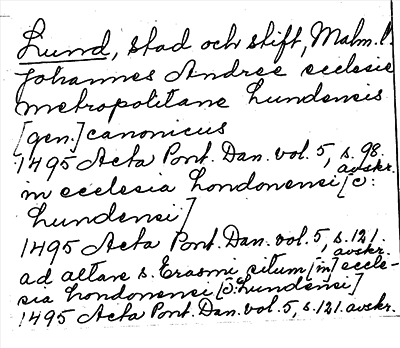 Lund, stad och stift, Malm. l.
Johannes Andree ecclesie
metropolitane Lundensis
[gen.] canonicus
1495 Acta Pont. Dan. vol. 5, s. 98.
avskr.
in ecclesia Londonensi [ɔ:
Lundensi]
1495 Acta Pont. Dan. vol. 5, s. 121.
avskr.
ad altare s. Erasmi situm [in] eccle-
sia Londonensi [ɔ: Lundensi]
1495 Acta Pont. Dan. vol. 5, s. 121. avskr.